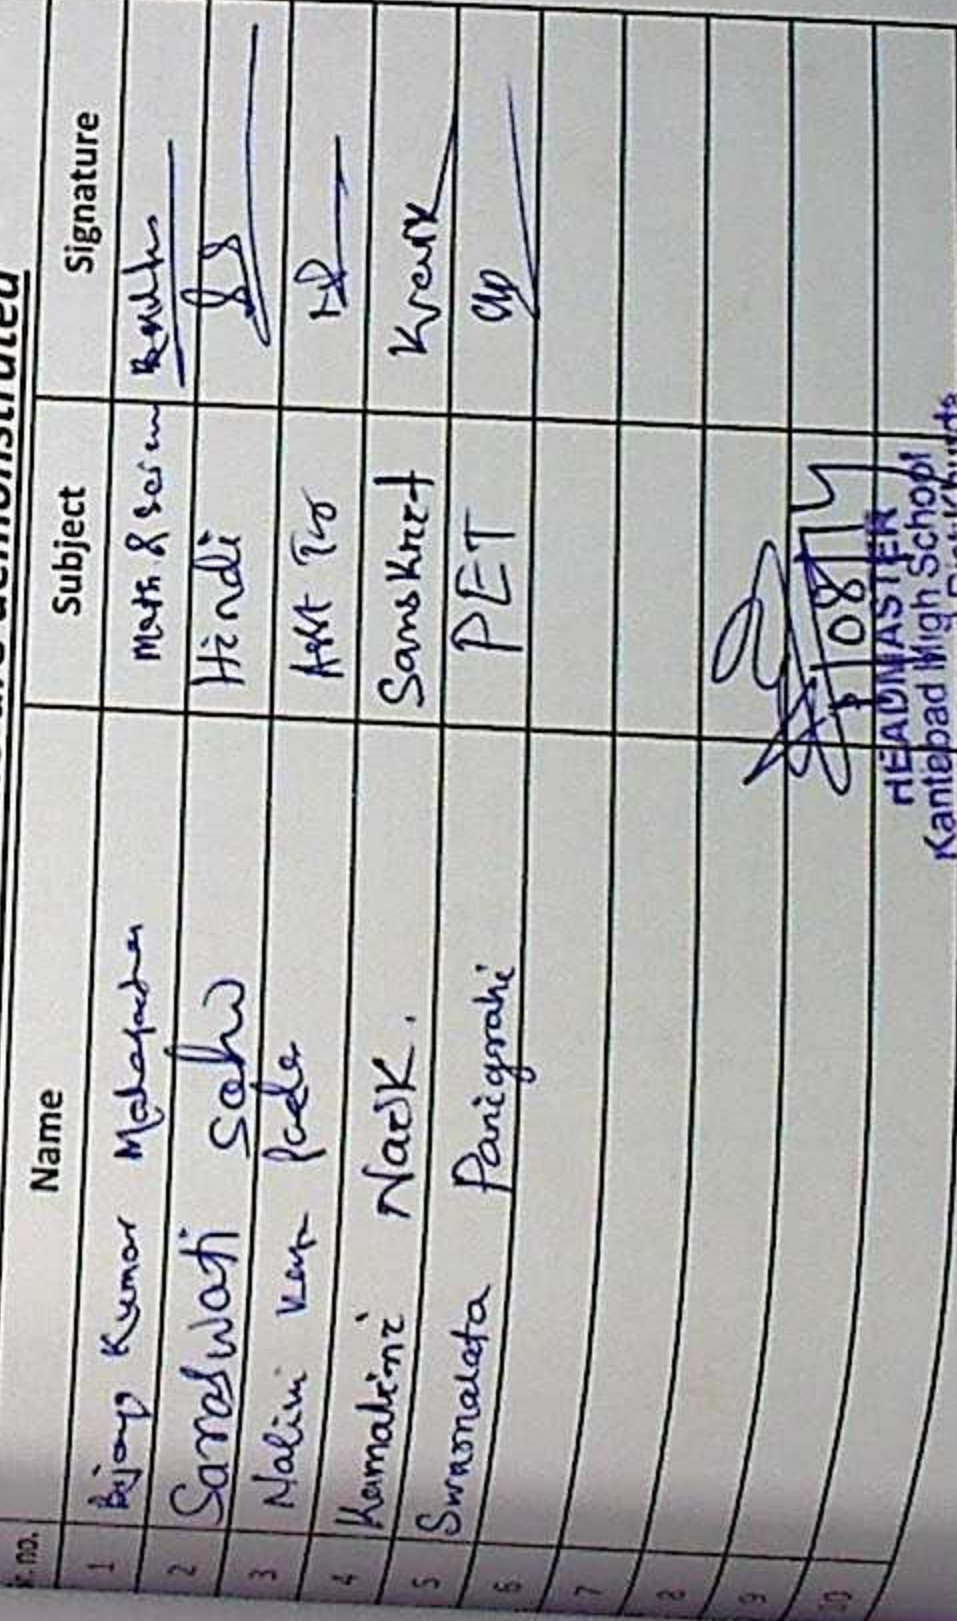 demonstrated
r. no. Name Subject Signature
1 Bijay Kumar Mahapatra Math & Scien
2 Saraswati Sahu Hindi
3 Nalini Asst Tr
4 Kamalini Naik. Sanskrit
5 Swarnalata Panigrahi PET
6
7
8
9
10
HEADMASTER
Kantabad High School